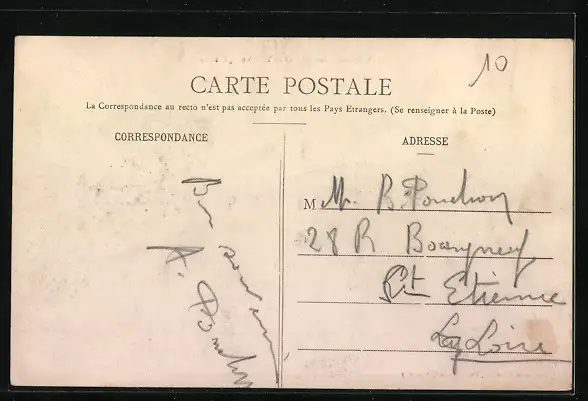 10
CARTE POSTALE
La Correspondance au recto n'est pas acceptée par tous les Pays Etrangers. (Se renseigner à la Poste)
CORRESPONDANCE
ADRESSE
Bon souvenir
A. Ponchon
M Mr. B. Ponchon
28 R Bourgneuf
St Etienne
La Loire